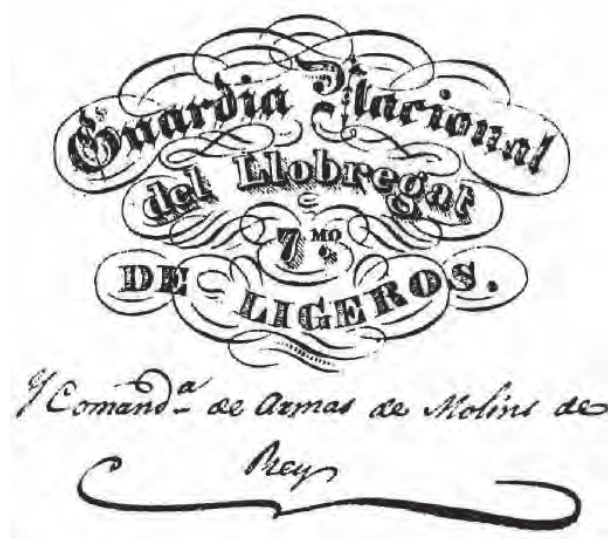 Guardia Nacional
del Llobregat
7.MO
DE LIGEROS.
y Comand.a de Armas de Molins de
Rey